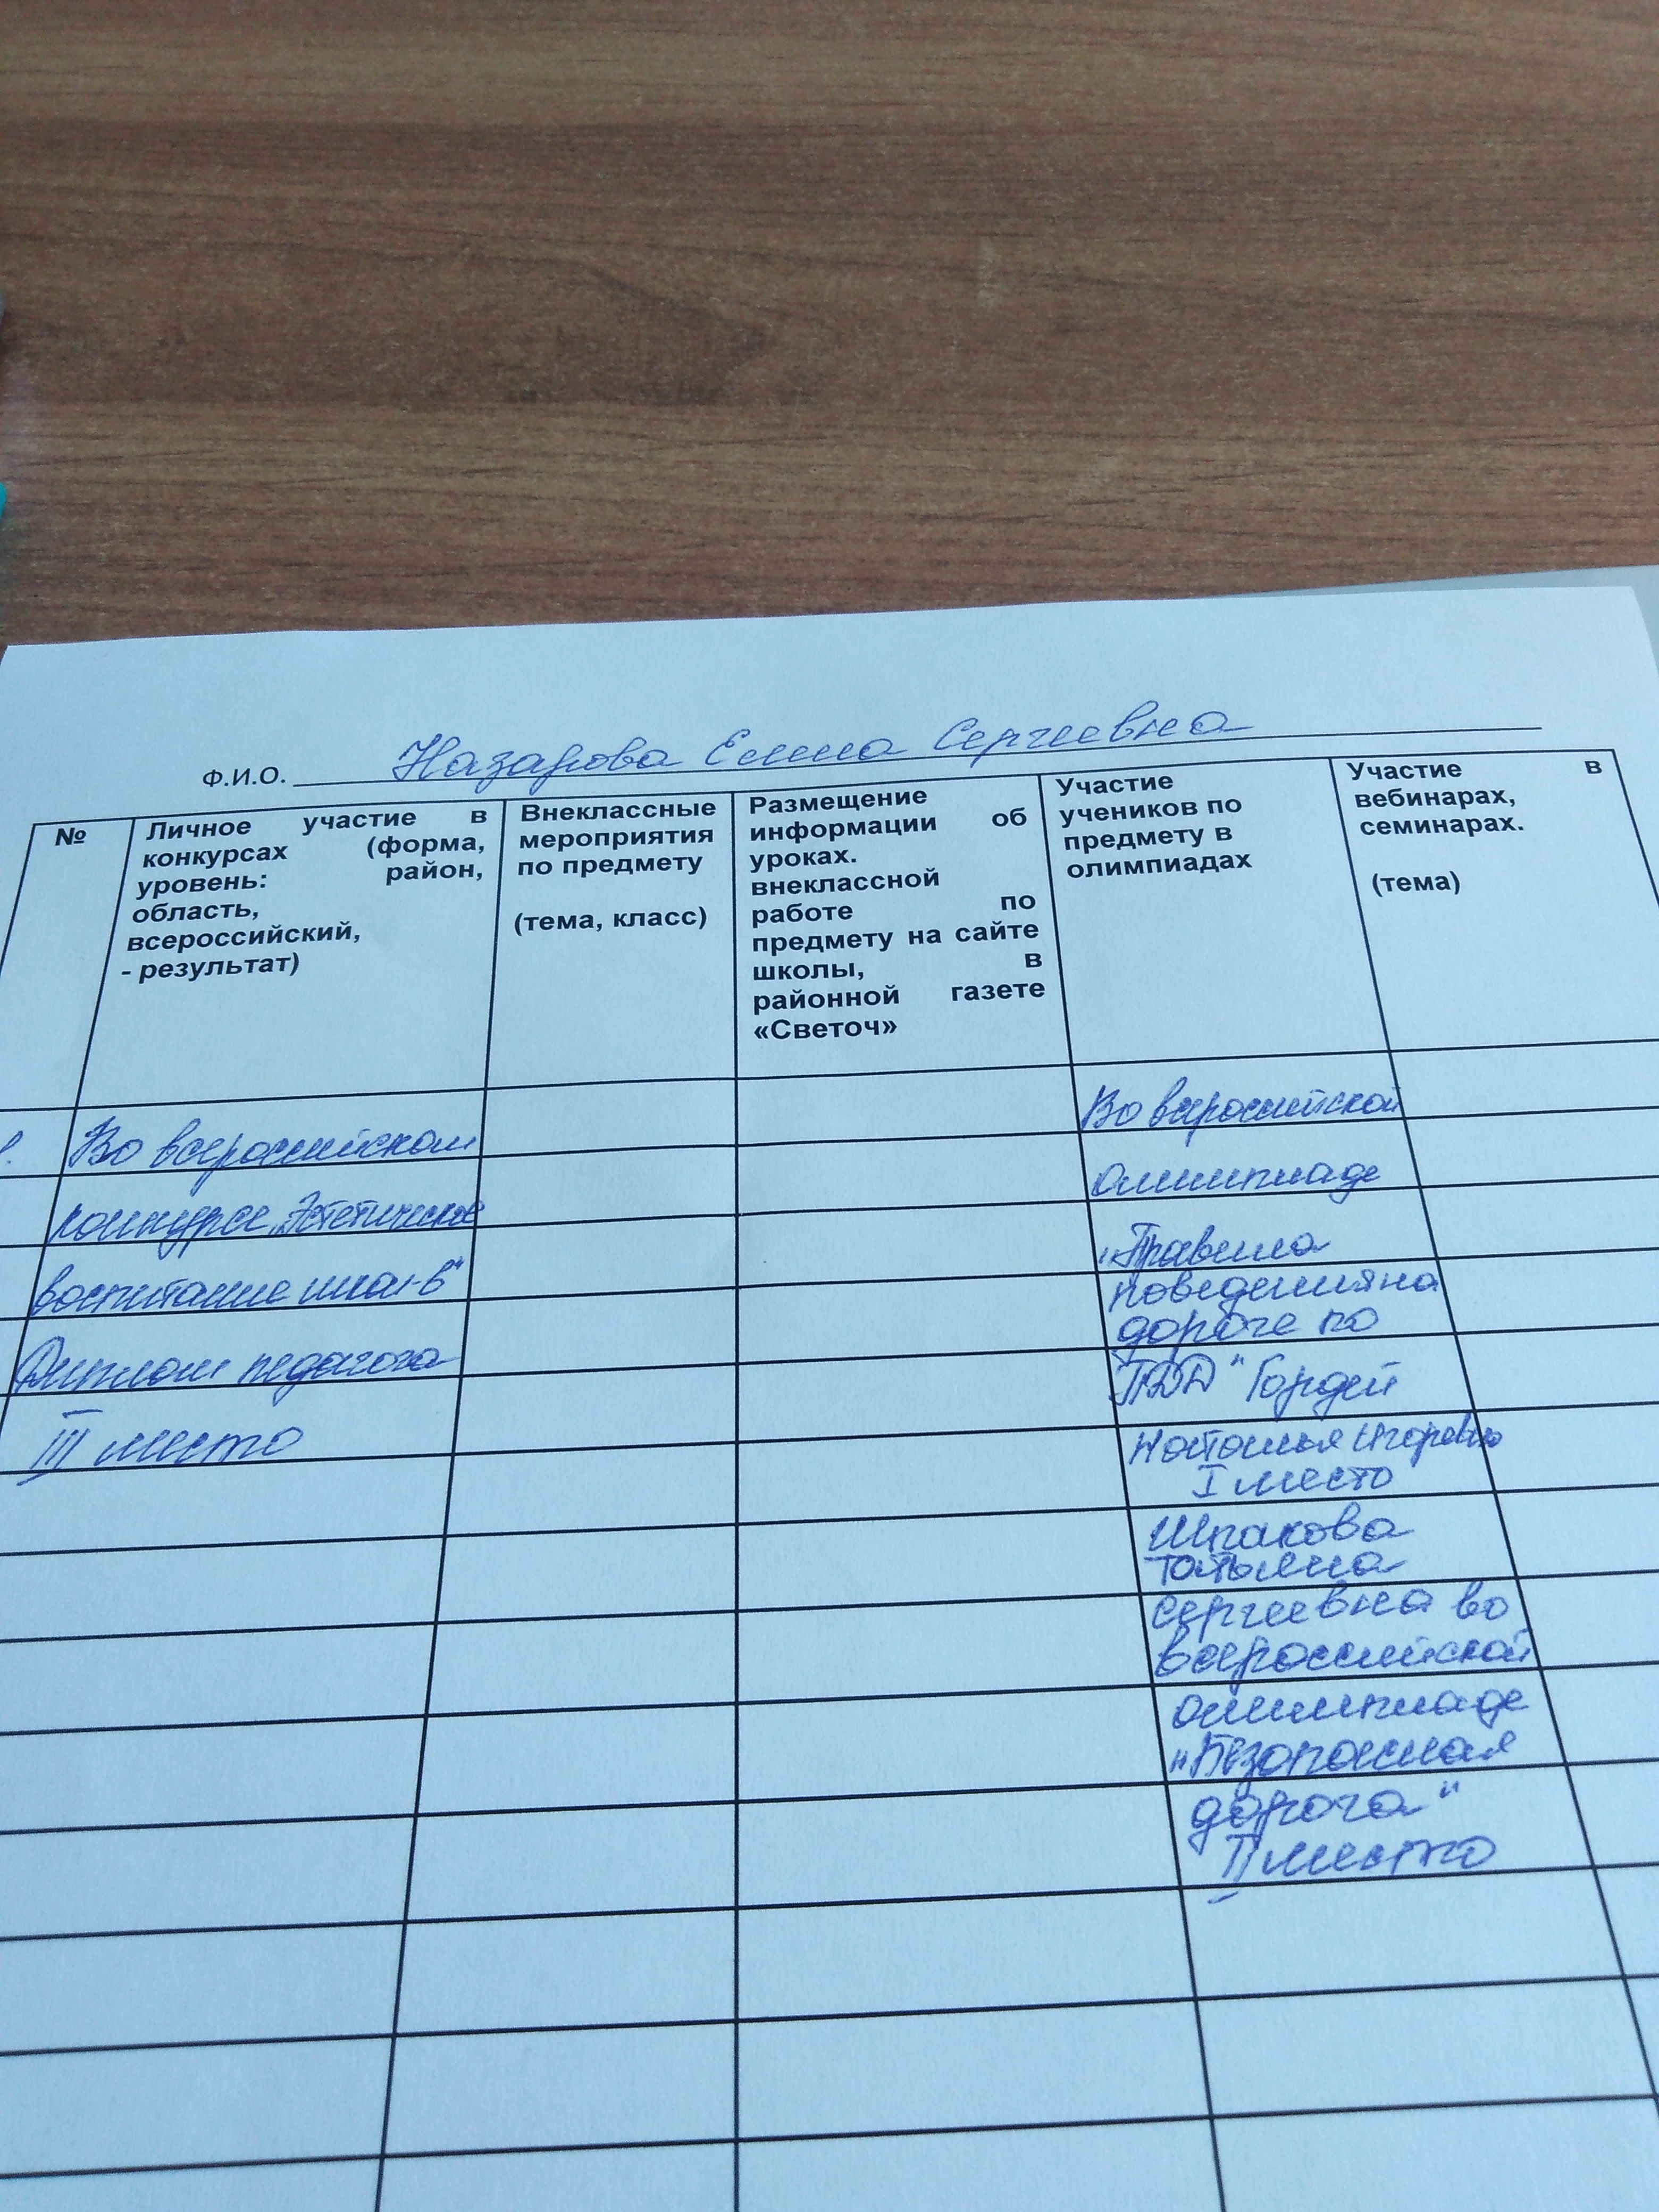 Ф.И.О. Назарова Елена Сергеевна
№
Личное участие в
конкурсах (форма,
уровень: район,
область,
всероссийский,
- результат)
Внеклассные
мероприятия
по предмету
(тема, класс)
Размещение
информации об
уроках.
внеклассной
работе по
предмету на сайте
школы, в
районной газете
«Светоч»
Участие
учеников по
предмету в
олимпиадах
Участие в
вебинарах,
семинарах.
(тема)
Во всероссийском
конкурсе „Эстетическое
воспитание шкл-в"
Диплом педагога
III место
Во всероссийской
олимпиаде
„Правила
поведения на
дороге по
ПДД" Гордей
Наталья Игоревна
I место
Шпакова
Татьяна
Сергеевна во
всероссийской
олимпиаде
„Безопасная
дорога"
II место